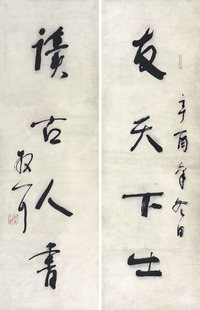 友天下士
辛酉年冬日
讀古人书
散之